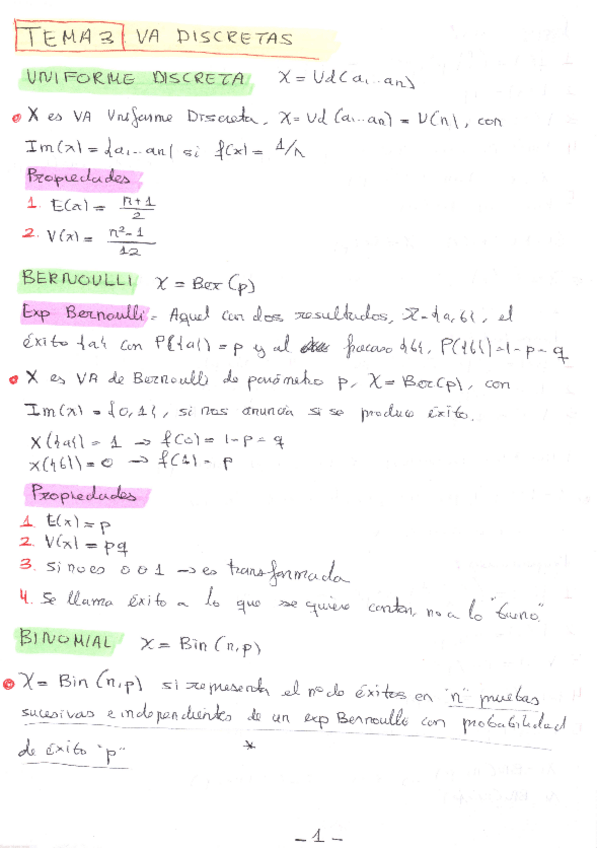 TEMA 3 VA DISCRETAS
UNIFORME DISCRETA X = Ud(a1...an)
X es VA Uniforme Discreta, X = Ud(a1...an) = U(n), con
Im(x) = {a1...an} si f(x) = 1/n
Propiedades
1. E(x) = n+1/2
2. V(x) = n²-1/12
BERNOULLI X = Ber(p)
Exp Bernoulli = Aquel con dos resultados, X = {a,b}, el
éxito {a} con P({a}) = p y al fracaso {b}, P({b}) = 1-p = q
X es VA de Bernoulli de parámetro p, X = Ber(p), con
Im(x) = {0,1}, si nos anuncia si se produce éxito.
X({a}) = 1 → f(0) = 1-p = q
X({b}) = 0 → f(1) = p
Propiedades
1. E(x) = p
2. V(x) = pq
3. Si no es 0 o 1 → es transformada
4. Se llama éxito a lo que se quiere contar, no a lo "bueno"
BINOMIAL X = Bin(n,p)
X = Bin(n,p) si representa el nº de éxitos en "n" pruebas
sucesivas e independientes de un exp Bernoulli con probabilidad
de éxito "p" *
- 1 -